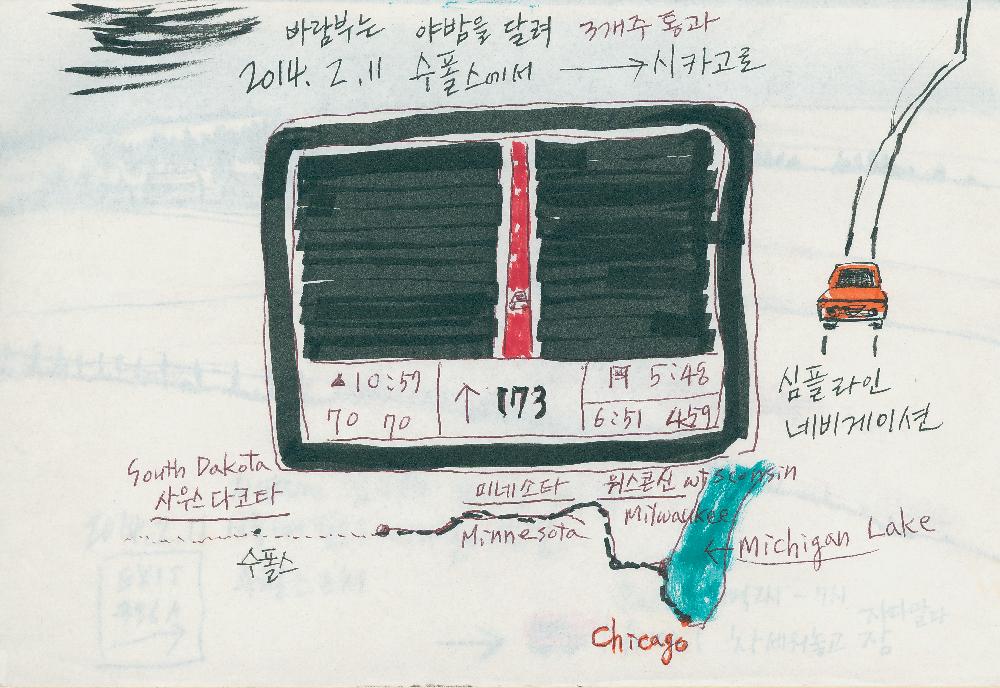 바람부는 야밤을 달려 3개주 통과
2014. 2. 11 수폴스에서 → 시카고로
▲10:57
70 70
↑ 173
5:48
6:51 459
심플라인
네비게이션
South Dakota
사우스다코타
수폴스
미네소타
Minnesota
위스콘신 Wisconsin
Milwaukee
← Michigan Lake
Chicago